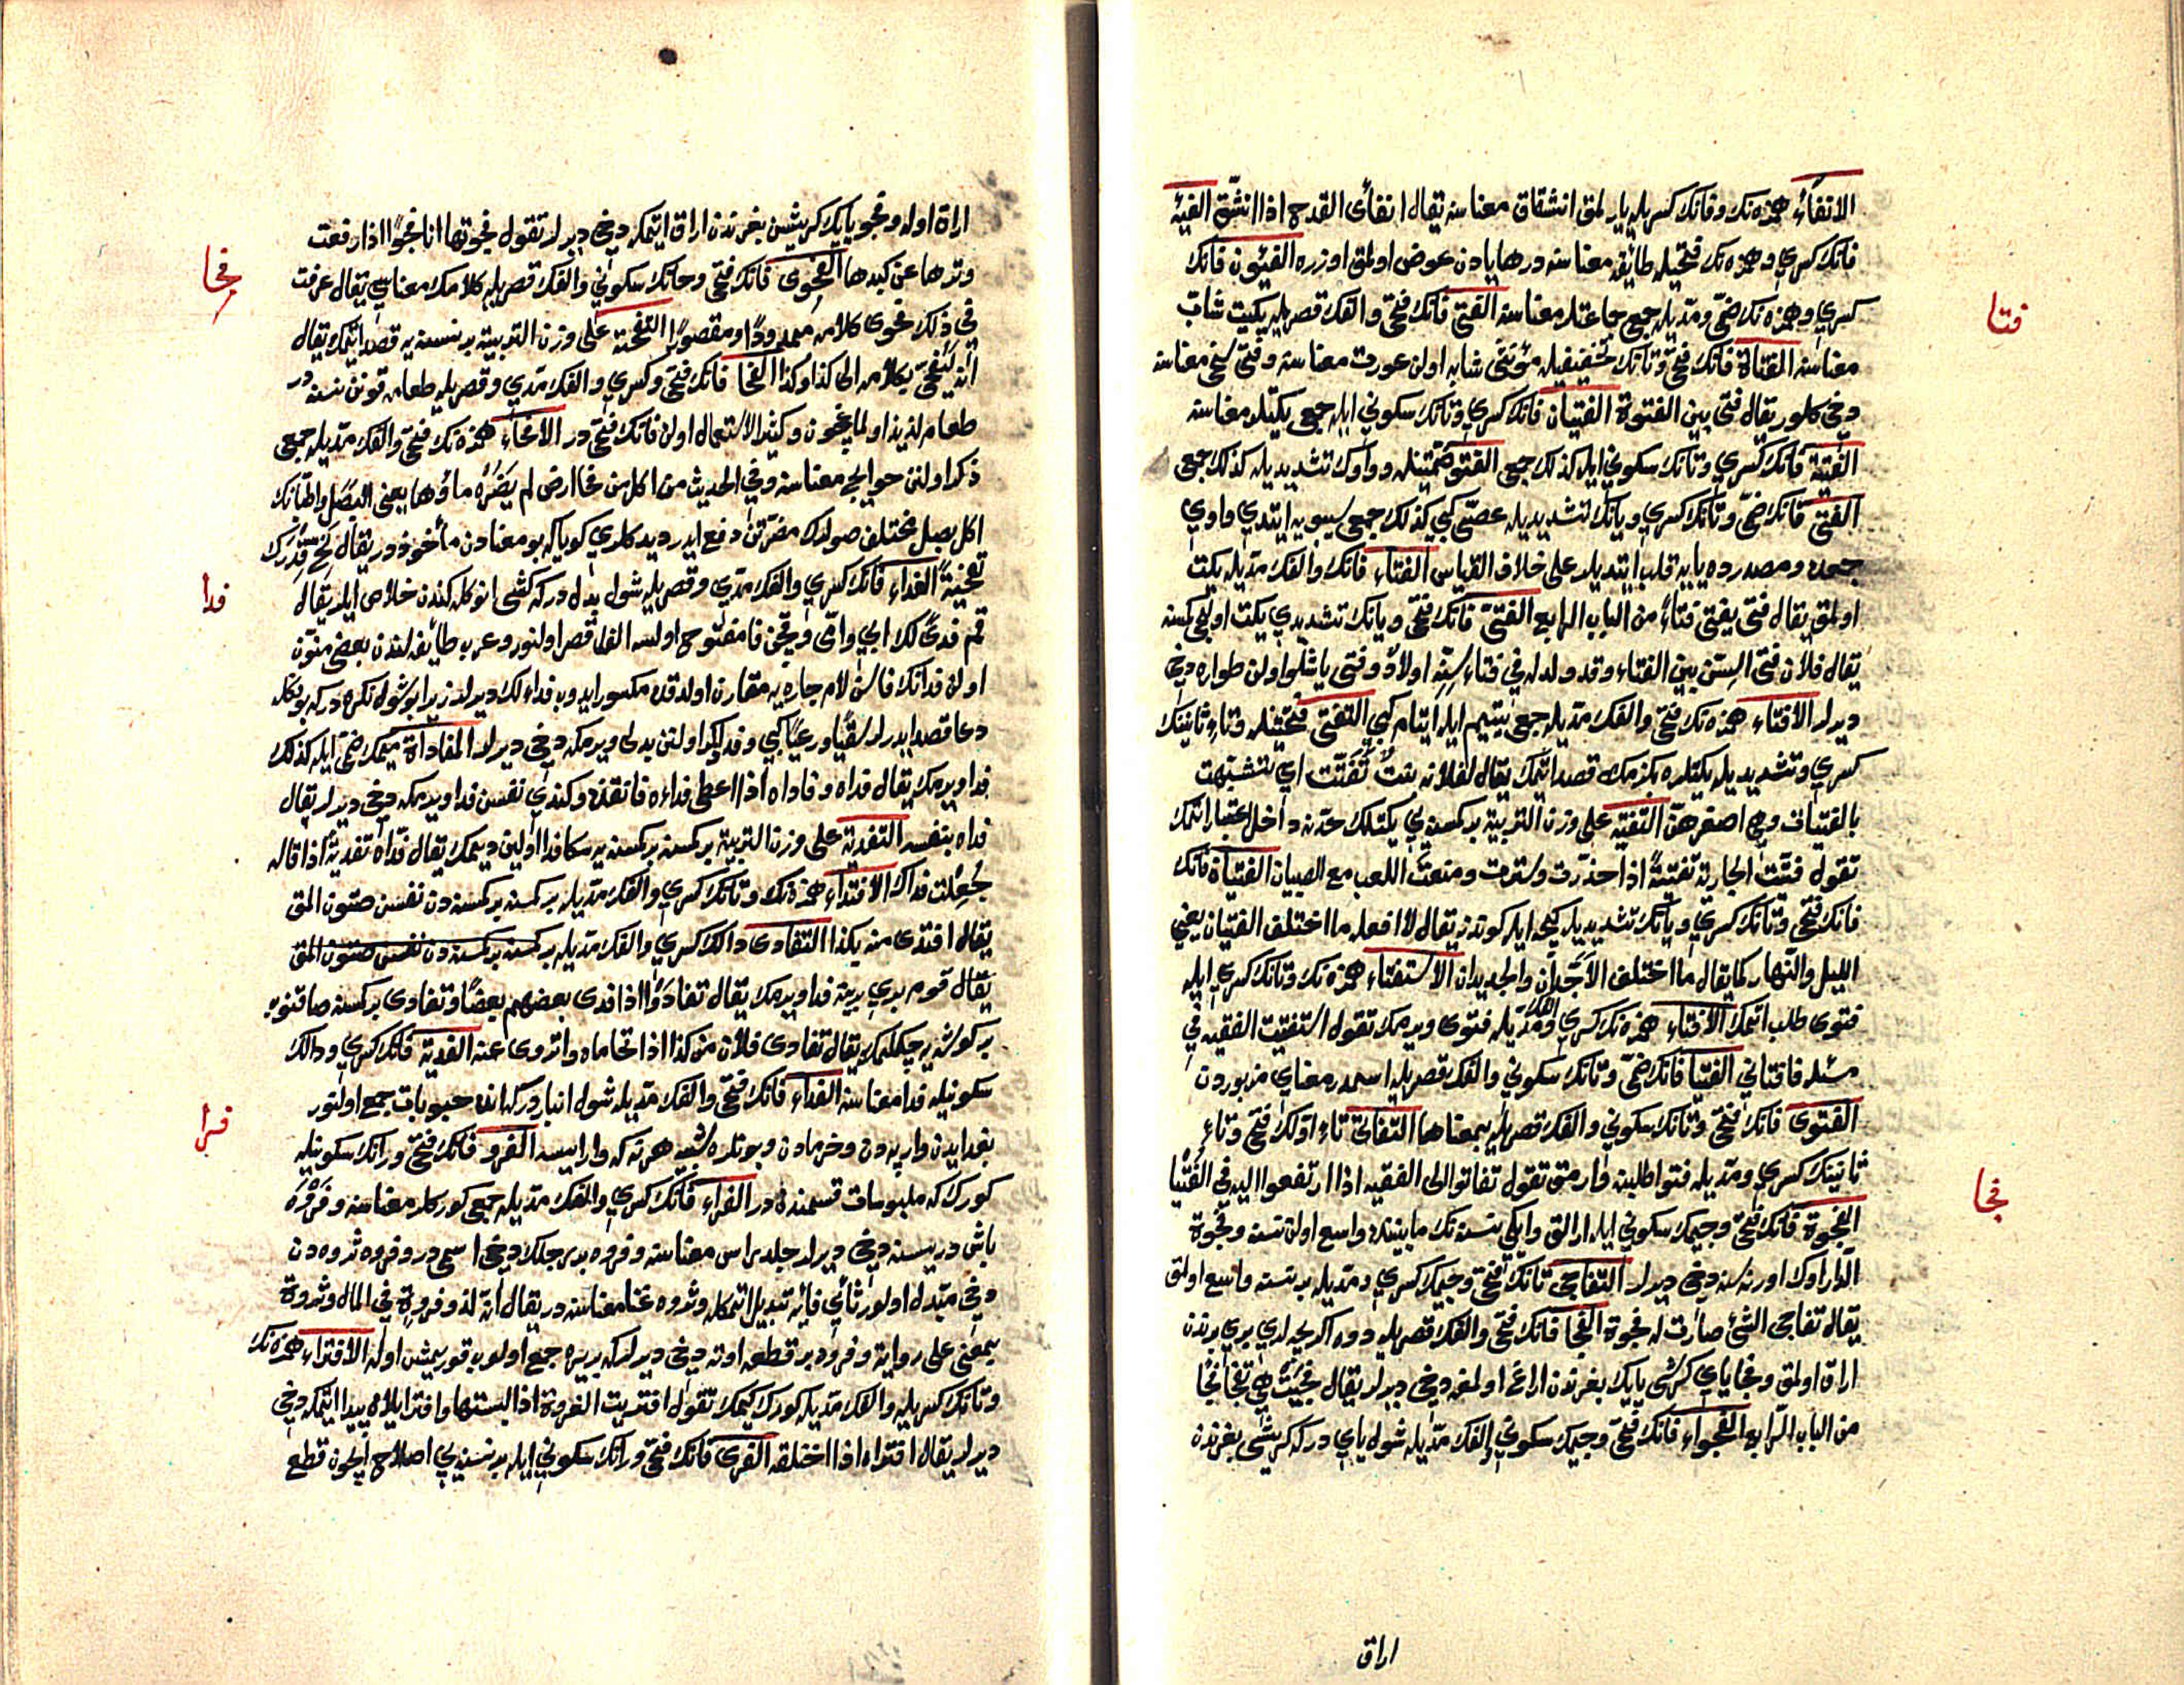 الانفآء همزه نك وفانك كسريله يارلمق انشقاق معناسنه يقال انفأى القدح اذا انشق الفئه
فانك كسري وهمزه نك فتحيله طائفه معناسنه در هايادن عوض اولمق اوزره الفئون فانك
كسري وهمزه نك ضمي ومديله جمع جماعتلر معناسنه الفتى فانك فتحي والفك قصريله يكيت شاب
معناسنه الفتاة فانك فتحي وتانك تخفيفيله مؤنثي شابه اولن عورت معناسنه وفتى سخي معناسنه
دخي كلور يقال فتى بين الفتوة الفتيان فانك كسري وتانك سكوني ايله جمع يكيتلر معناسنه
الفتية فانك كسري وتانك سكوني ايله كذلك جمع الفتو ضمتينله وواوك تشديديله كذلك جمع
الفتي فانك ضمي وتانك كسري ويانك تشديديله عصي كبي كذلك جمع سيبويه ايتدي واوي
جمعده ومصدرده يايه قلب ايتديلر على خلاف القياس الفتاء فانك والفك مديله يكت
اولمق يقال فتي يفتى فتاء من الباب الرابع الفتي فانك فتحي ويانك تشديدي يكت اولجي كمسنه
يقال فلان فتي السن بين الفتاء وقد ولد له في فتاء سنه اولاد وفتي ياشلو اولن طواره دخي
ديرلر الافتاء همزه نك فتحي والفك مديله جمع يتيم ايله ايتام كبي التفتي فتحتينله وتاء ثانينك
كسري وتشديديله يكيتلره بكزمك قصد اتمك يقال لفلانه بنت تفتت اي تشبهت
بالفتيات وهي اصغرهن التفتيه على وزن التربية بر كمسنه يي يكتلك حدنه داخل اعتبار اتمك
تقول فتيت الجارية تفتية اذا خدرت وسترت ومنعت اللعب مع الصبيان الفتيان فانك
فانك فتحي وتانك كسري ويانك تشديديله كيجه ايله كوندز يقال لا افعله ما اختلف الفتيان يعني
الليل والنهار كما يقال ما اختلف الاجدان والجديدان الاستفتاء همزه نك وتانك كسري ايله
فتوى طلب اتمك الافتاء همزه نك كسري والفك مديله فتوى ويرمك تقول استفتيت الفقيه في
مسئلة فافتاني الفتيا فانك ضمي وتانك سكوني والفك قصريله اسمدر معناي مزبوردن
الفتوى فانك فتحي وتانك سكوني والفك قصريله بمعناها التفاتي تاء اولك فتحي وتاء
ثانينك كسري ومديله فتوا طلبنه وارمق تقول تفاتوا الى الفقيه اذا ارتفعوا اليه في الفتيا
الفجوة فانك فتحي وجيمك سكوني ايله ارالق وايكي نسنه نك مابيننده واسع اولن نسنه وفجوة
الدار اوك اورته سنه دخي ديرلر التفاجي تانك فتحي وجيمك كسري ومديله بر نسنه واسع اولمق
يقال تفاجى الشئ صارت له فجوة الفجا فانك فتحي والفك قصريله دوه اكريجه لري بري برندن
اراق اولمق وفجا ياي كرشي يايك بغرندن اراغ اولمغه دخي ديرلر يقال فجيت هي تفجا فجا
من الباب الرابع الفجواء فانك فتحي وجيمك سكوني والفك مديله شول ياي در كه كريشي بغرندن
اراق
فتا
فجا
اراق اوله وفجو يايك كريشين بغرندن اراق ايتمكه دخي ديرلر تقول فجوتها انا فجوا اذا رفعت
وترها عن كبدها الفحوى فانك فتحي وحانك سكوني والفك قصريله كلامك معناسي يقال عرفت
في ذلك فحوى كلامه ممدودا ومقصورا التفحية على وزن التربية بر نسنه يه قصد اتمك يقال
انه ليفحي بكلامه الى كذا وكذا الفحا فانك فتحي وكسري والفك مدي وقصريله طعامه قونن نسنه در
طعام لذيذ اولماغيچون وكثير الاستعمال اولن فانك فتحي در الافحاء همزه نك فتحي والفك مديله جمعي
ذكر اولنن حوايج معناسنه وفي الحديث من اكل من فحا ارض لم يضره ماؤها يعني البصل
اكل بصل مختلف صولرك مضرتن دفع ايدر ديد كلري كويا كه بو معنادن مأخوذ در يقال فح قدرك
تفحية الفداء فانك كسري والفك مدي وقصريله شول بدل در كه كشي انوكله كندن خلاص ايلر يقال
قم فدى لك ابي وامي وقچن فا مفتوح اولسه الف قصر اولنور وعرب طائفه لرندن بعضي منون
اولن فدانك فاسن لام جاره يه مقارن اولدقده مكسور ايدوب فداء لك ديرلر زيرا بو شول نكره در كه بونكله
دعا قصد ايدرلر سقيا ورعيا كبي وفدا ذكر اولنن بدلي ويرمكه دخي ديرلر المفاداة ميمك ضمي ايله كذلك
فدا ويرمك يقال فداه وفاداه اذا اعطى فداءه فانقذه وكندي نفسن فدا ويرمكه دخي ديرلر يقال
فداه بنفسه التفدية على وزن التربية بر كمسنه بر كمسنه يه سكا فدا اولين ديمك يقال فداه تفدية اذا قال له
جعلت فداك الافتداء همزه نك وتانك كسري والفك مديله بر كمسنه بر كمسنه دن نفسن صتون المق
يقال افتدى منه بكذا التفادى دالك كسري والفك مديله بر كمسنه بر كمسنه دن نفسن صتون المق
يقال قوم بري برينه فدا ويرمك يقال تفادوا اذا فدى بعضهم بعضا وتفادى بر كمسنه صاقنوب
بر كوشه يه چكلمك يقال تفادى فلان من كذا اذا تحاماه وانزوى عنه الفدية فانك كسري ودالك
سكونيله فدا معناسنه الفداء فانك فتحي والفك مديله شول انبار در كه انده حبوبات جمع اولنور
بغدايدن وارپه دن وخرمادن وبونلره شبيه هر نه كه وار ايسه الفرو فانك فتحي ورانك سكونيله
كورك كه ملبوسات قسمنده در الفراء فانك كسري والفك مديله جمعي كوركلر معناسنه وفروه
باش دريسنه دخي ديرلر جلد راس معناسنه وفروه بر رجلك دخي اسمي در وفروه ثروه دن
دخي مبدل اولور ثائي فايه تبديل اتمكله وثروه غنا معناسنه در يقال انه لذو فروة في المال وثروة
بمعنى على رواية وفروه بر قطعه اوته دخي ديرلر كه بر يره جمع اولوب قوريمش اوله الافتراء همزه نك
وتانك كسريله والفك مديله كورك كيمك تقول افتريت الفروة اذا لبستها وافترا يلان پيدا ايتمكه دخي
ديرلر يقال افتراه اذا اختلقه الفرى فانك فتحي ورانك سكوني ايله بر نسنه يي اصلاح ايچون قطع
فحا
فدا
فرا